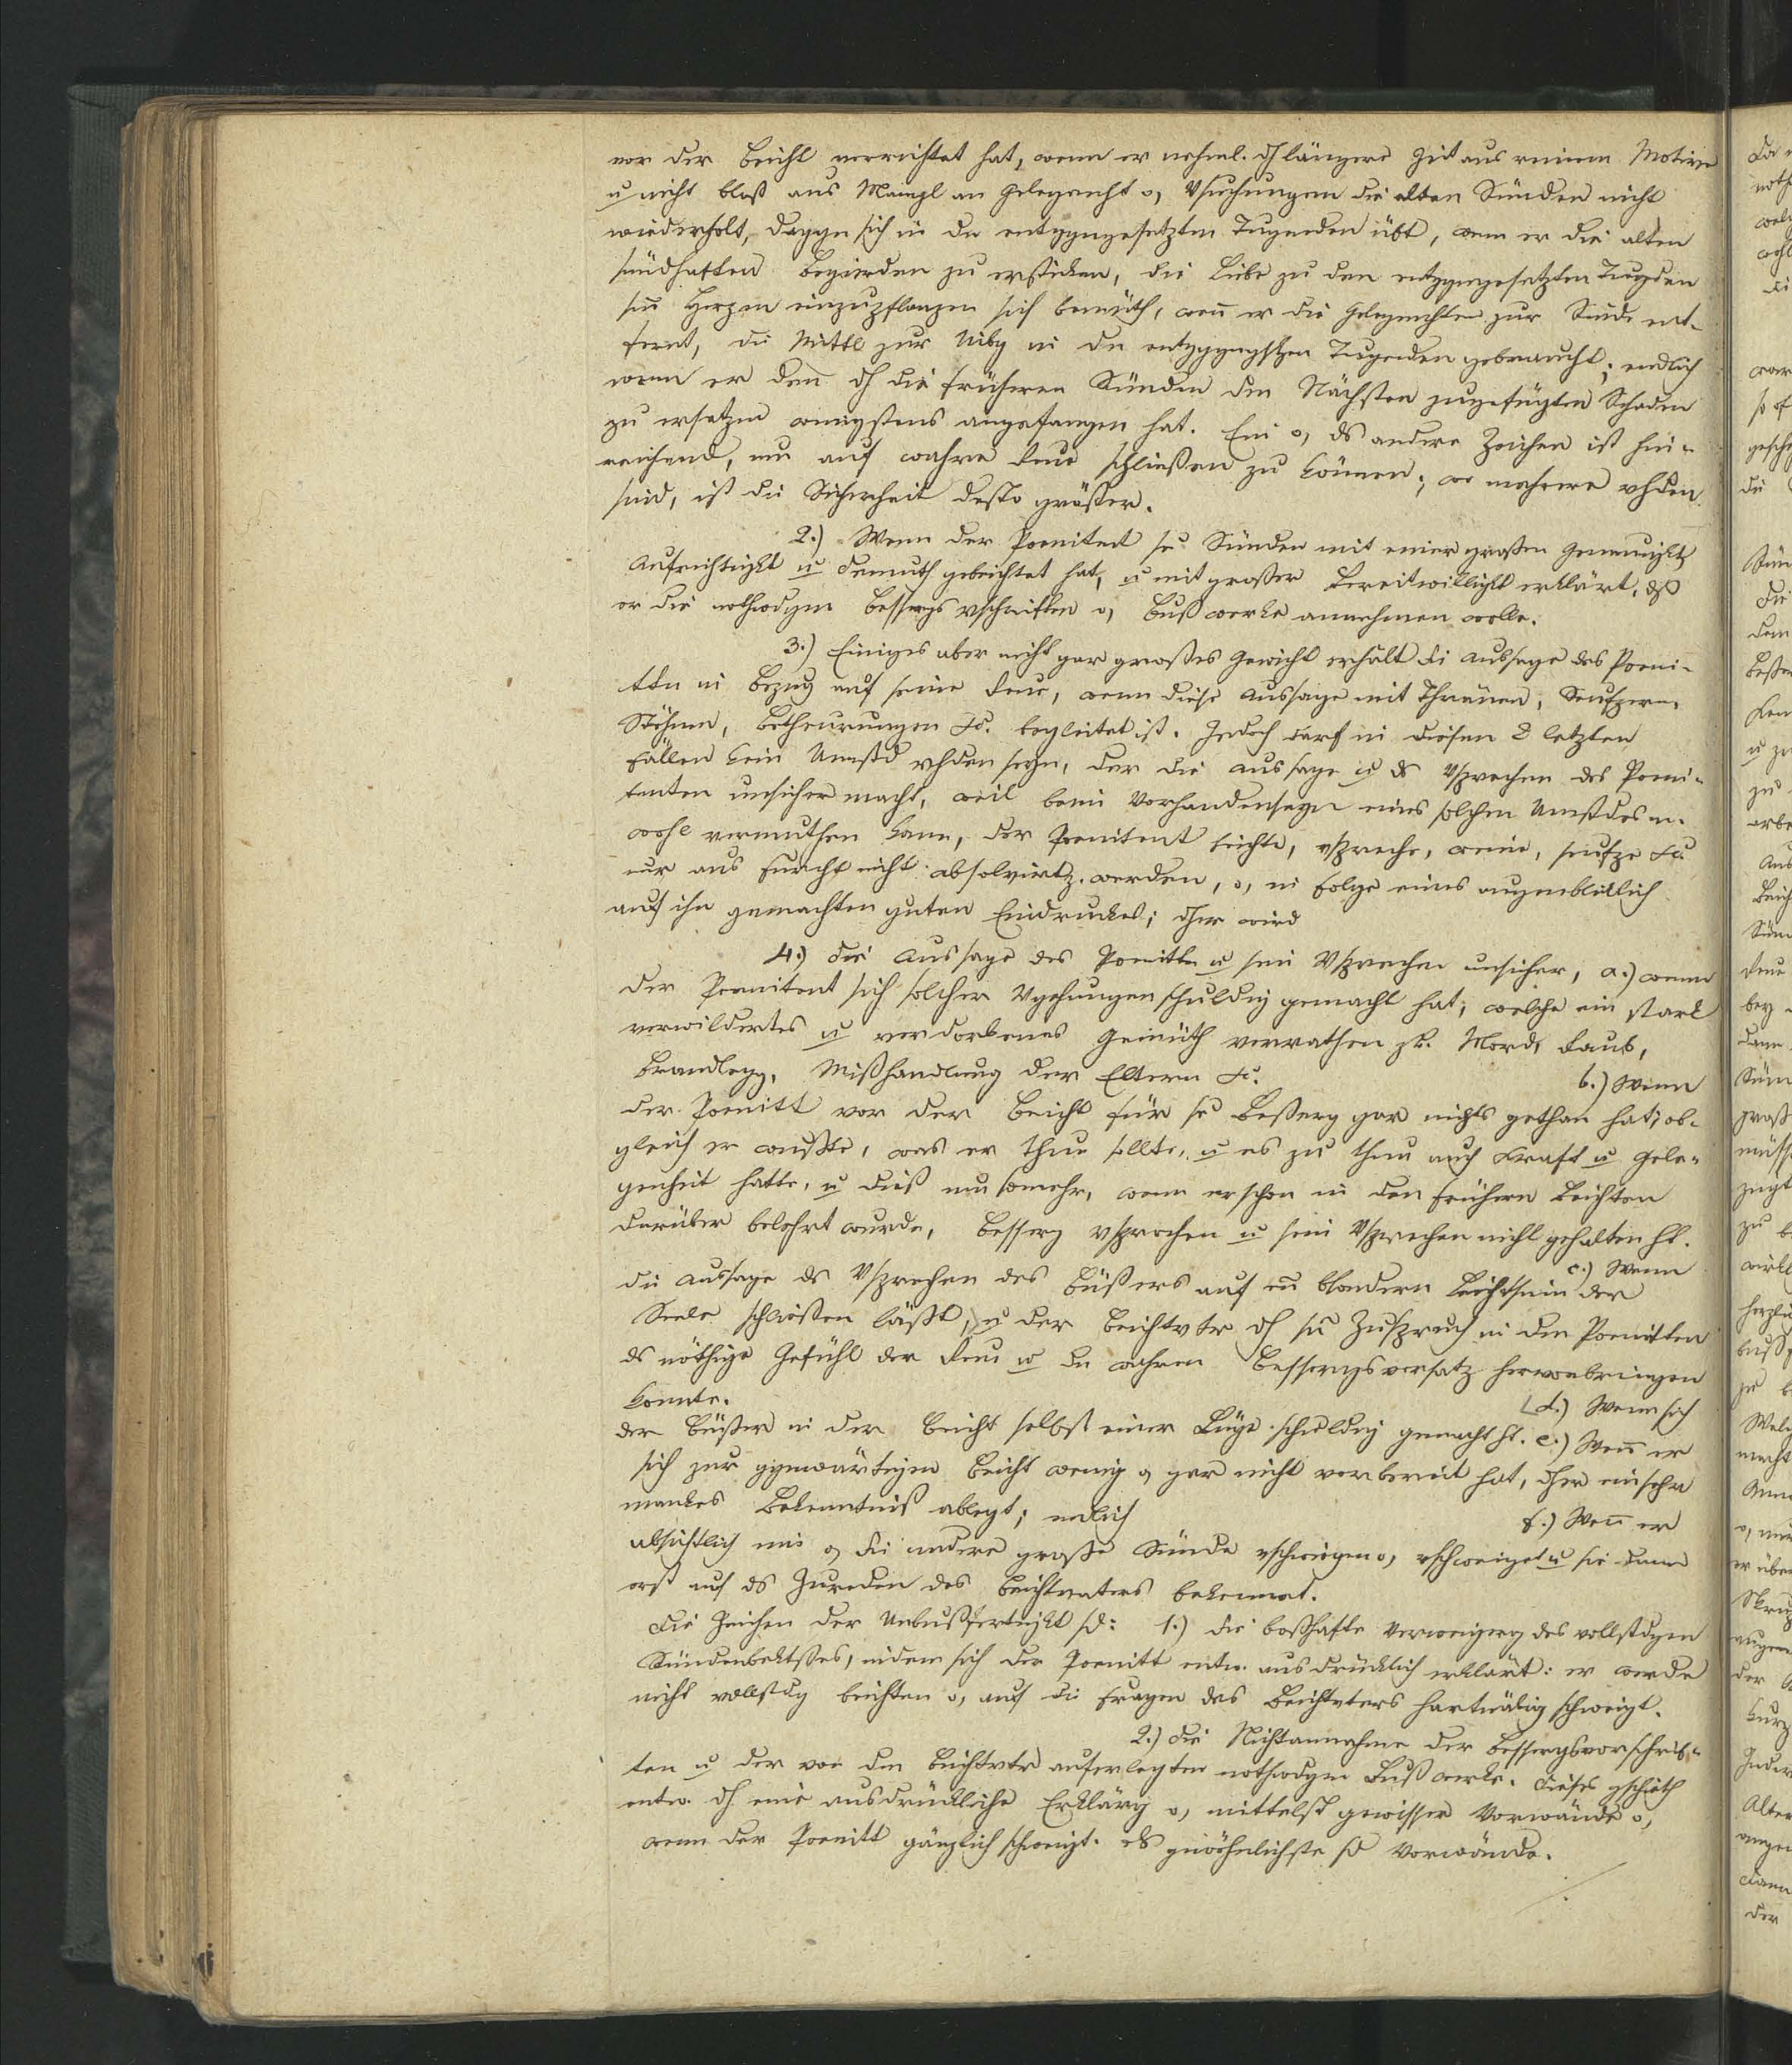 vor der Beicht verrichtet hat, wenn er nehml. dh längere Zeit aus reinem Motive
u nicht bloß aus Mangl an Gelegenht o, Vsuchungen die alten Sünden nicht
wiederholt, dagegen sich in den entggngesetzten Tugenden übt, wenn er die alten
sündhaften Begierden zu ersticken, die Liebe zu den entggngesetzten Tugden
sm Herzen einzupflanzen sich bemüth, wenn er die Gelegenhten zur Sünde ent-
fernt, die Mittl zur Uibg in den entggngstzten Tugenden gebraucht; endlich
wenn er den dh die früheren Sünden dem Nächsten zugefügten Schaden
zu ersetzen wenigstens angefangen hat. Ein o, ds andere Zeichen ist hin-
reichend, um auf wahre Reue schließen zu können; wo mehrere vhden
sind, ist die Sicherheit desto größer.
2.) Wenn der Poenitent se Sünden mit einer großen Genauigkt,
Aufrichtigkt u Demuth gebeichtet hat, u mit großer Bereitwilligkt erklärt, dß
er die nothwdgen Bessergs vschriften o, Bußwerke annehmen wolle.
3.) Einiges aber nicht gar großes Gewicht erhält die Aussage des Poeni-
ttn in Bezug auf seine Reue, wenn diese Aussage mit Thränen, Seufzern,
Stöhnen, Betheurungen &c. begleitet ist. Jedoch darf in diesen 2 letzten
Fällen kein Umstd vhden seyn, der die Aussage u ds Vsprechen des Poeni-
tenten unsicher macht, weil beim Vorhandenseyn eines solchen Umstdes m.
wohl vermuthen kann, der Poenitent beichte, vspreche, weine, seufze &c.
nur aus Furcht nicht absolvirt z. werden, o, in Folge eines augenblicklich
auf ihn gemachten guten Eindruckes; dher wird
4.) die Aussage des Poenittn u sein Vsprechen unsicher, a.) wenn
der Poenitent sich solcher Vgehungen schuldig gemacht hat; welche ein stark
verwildertes u verdorbenes Gemüth verrathen zB. Mord, Raub,
Brandlegg, Mißhandlung der Eltern &c.
b.) Wenn
der Poenitt vor der Beicht für se Beßerg gar nichts gethan hat; ob-
gleich er wußte, was er thun sollte, u es zu thun auch Kraft u Gele-
genheit hatte, u dieß um somehr, wenn er schon in den frühern Beichten
darüber belehrt wurde, Besserg vsprochen u sein Vsprechen nicht gehalten ht.
c.) Wenn
die Aussage ds Vsprechen des Büßers auf en bsondern Leichtsinn der
Seele schließen läßt, u der Beichtvtr dh sn Zuspruch in dem Poenitten
ds nöthige Gefühl der Reue u den wahren Besserngsvorsatz hervorbringen
konnte.
d.) Wenn sich
der Büßer in der Beicht selbst einer Lüge schuldig gemacht ht. e.) Wenn er
sich zur ggenwärtigen Beicht wenig o, gar nicht vorbereit hat, dher ein sehr
mankes Bekenntniß ablegt; endlich
f.) Wenn er
absichtlich eine o, die andere große Sünde vschwiegen o, vschweiget u sie dann
erst auf ds Zureden des Beichtvaters bekennet.
Die Zeichen der Unbußfertigkt sd: 1.) die boßhafte Verweigerg des vollstdgen
Sündenbektßes, indem sich der Poenitt entw. ausdrücklich erklärt: er werde
nicht vollstdg beichten o, auf die Fragen des Beichtvters hartnäkig schweigt.
2.) Die Nichtannahme der Bessergsvorschrif-
ten u der von dem Beichtvtr auferlegten nothwdgen Bußwerke. Dieses gschieth
entw. dh eine ausdrückliche Erklärg o, mittelst gewisser Vorwände o,
wenn der Poenitt gänzlich schweigt. ds gewöhnlichste sd Vorwände.